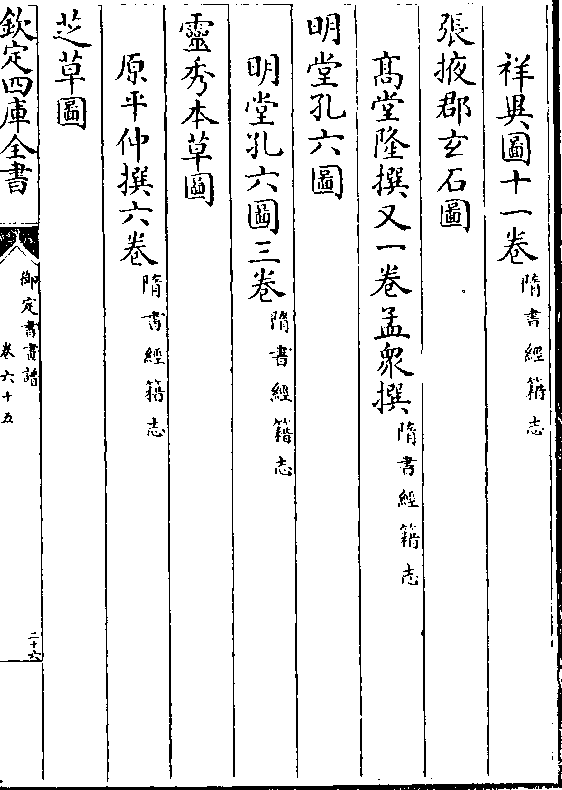 祥異圖十一卷隋書經籍志
張掖郡玄石圖
高堂隆撰又一卷孟衆撰隋書經籍志
明堂孔六圖
明堂孔六圖三卷隋書經籍志
靈秀本草圖
原平仲撰六卷隋書經籍志
芝草圖
欽定四庫全書 御定書畫譜 卷六十五 二十六